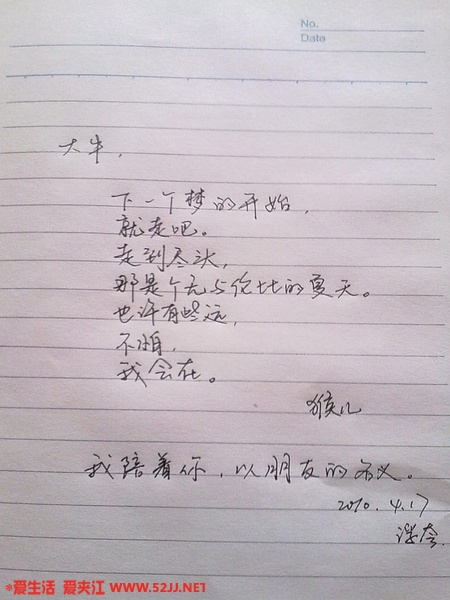 No.
Date
大牛，
下一个梦的开始，
就走吧。
走到尽头，
那是个无与伦比的夏天。
也许有些远，
不怕，
我会在。
猴儿
我陪着你，以朋友的名义。
2010.4.17
课套
*爱生活 爱夹江 WWW.52JJ.NET